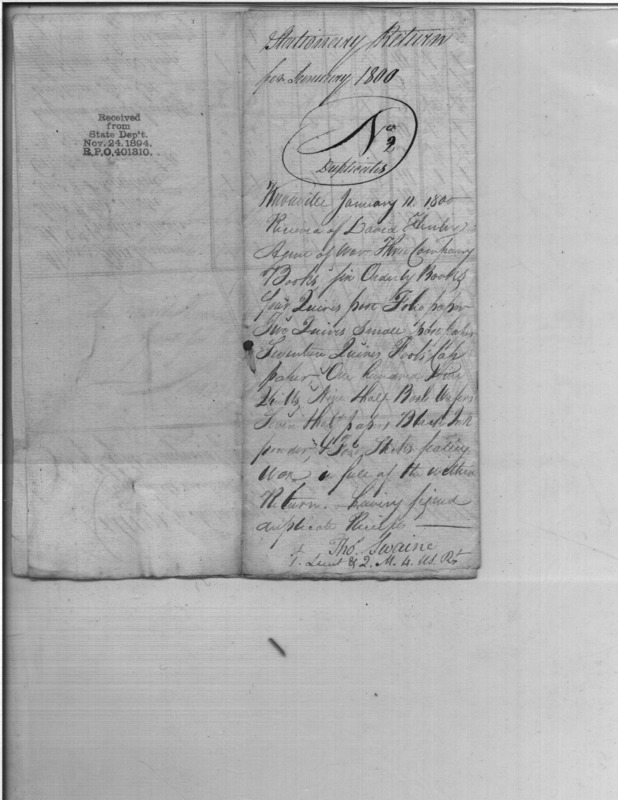 Received
from
State Dep't.
Nov. 24. 1894.
R.P.O. 401310.
Stationery Return
for January 1800
No
2
Duplicates
Knoxville January 11. 1800
Received of David Henley
Agent of War Three Company
Books, six Orderly Books
four Quires post Folio paper
Two Quires Small post paper
Seventeen Quires Foolscap
paper One hundred
Quills Nine Half Wafers
Seven Half papers Black Ink
powder & Four Sticks sealing
wax in full of the within
Return. Having signed
duplicate Receipts
Thos. Swaine
1. Lieut & Q. M. 4. US. Rt